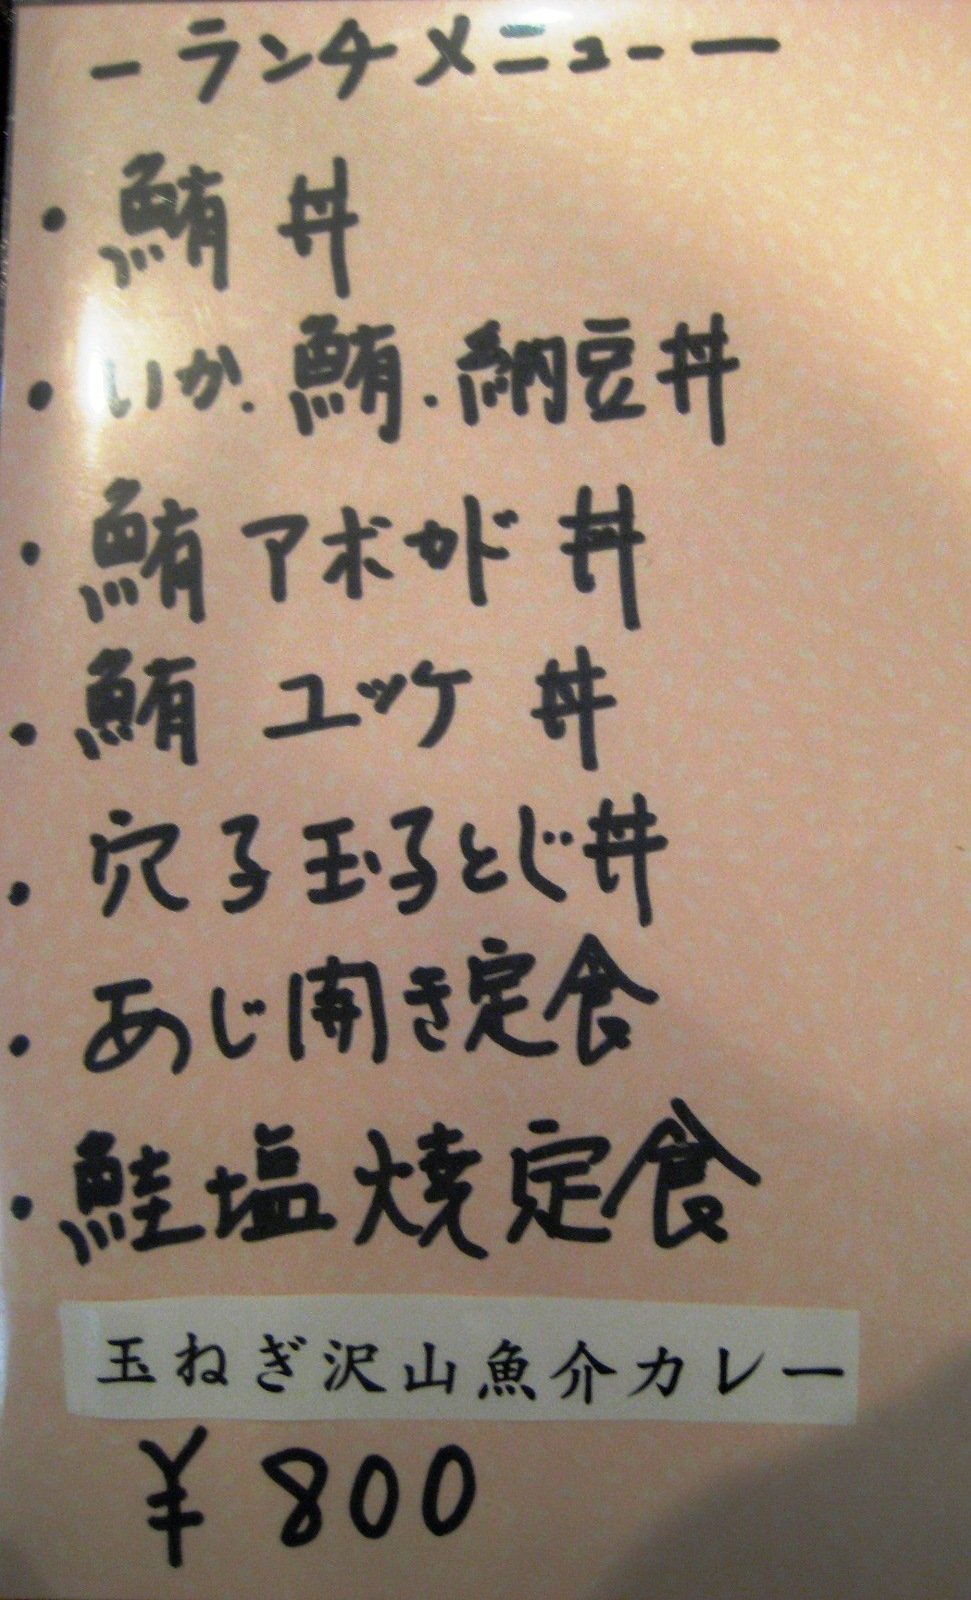 ーランチメニュー ー
・鮪 丼
・いか.鮪.納豆丼
・鮪 アボカド 丼
・鮪 ユッケ 丼
・穴子玉子とじ丼
・あじ開き定食
・鮭塩焼定食
玉ねぎ沢山魚介カレー
¥800